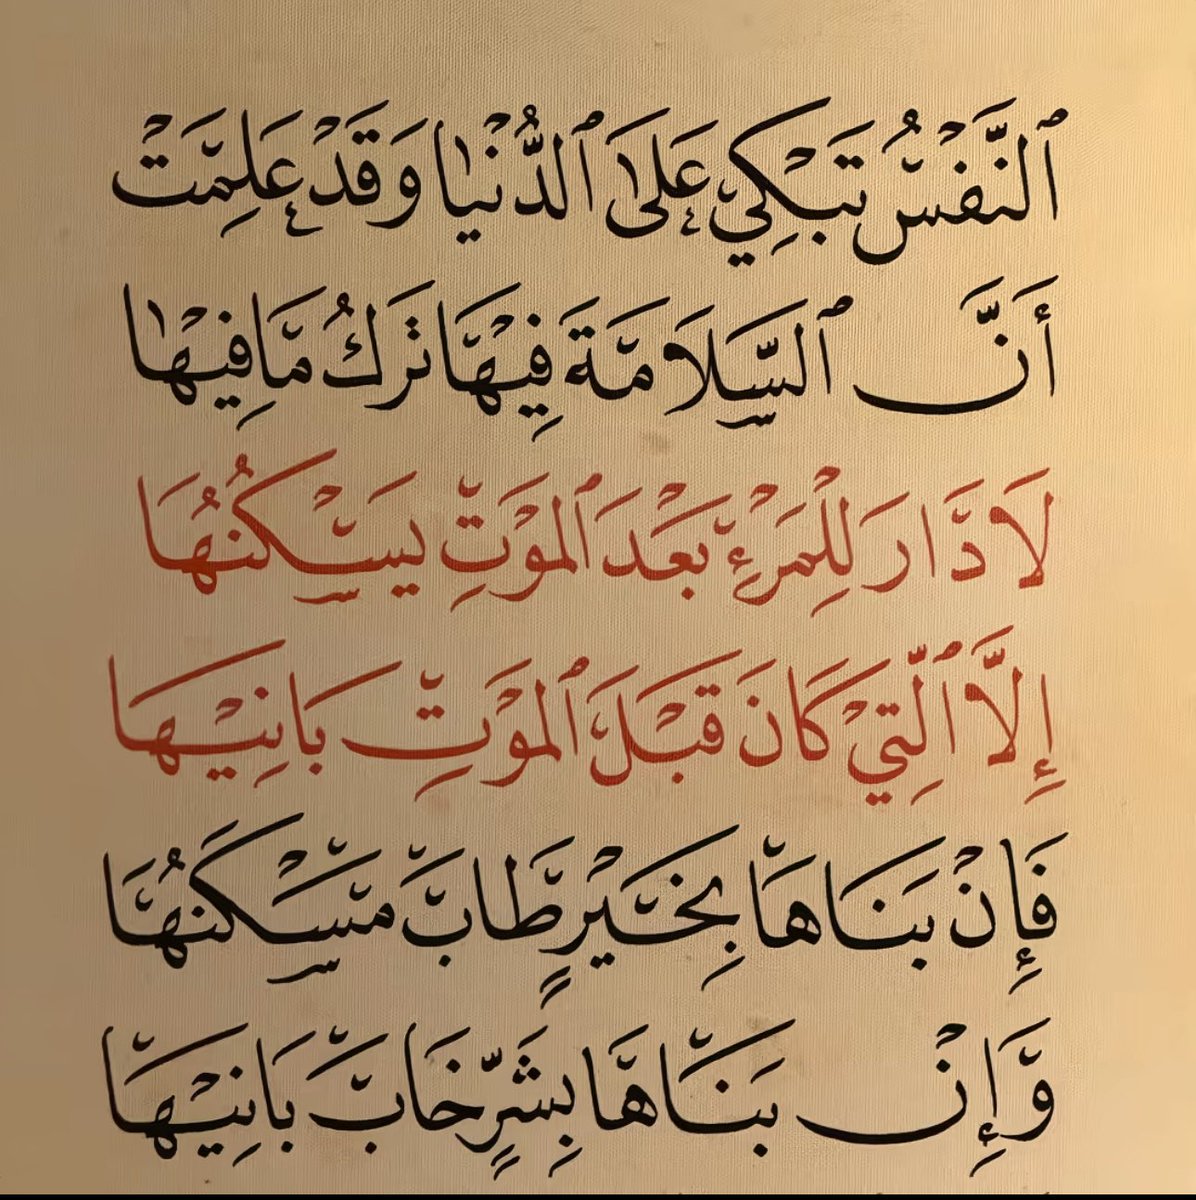 ٱلنَّفْسُ تَبْكِي عَلَى ٱلدُّنْيَا وَقَدْ عَلِمَتْ
أَنَّ ٱلسَّلَامَةَ فِيهَا تَرْكُ مَا فِيهَا
لَا دَارَ لِلْمَرْءِ بَعْدَ ٱلْمَوْتِ يَسْكُنُهَا
إِلَّا ٱلَّتِي كَانَ قَبْلَ ٱلْمَوْتِ بَانِيْهَا
فَإِنْ بَنَاهَا بِخَيْرٍ طَابَ مَسْكَنُهَا
وَإِنْ بَنَاهَا بِشَرٍّ خَابَ بَانِيْهَا